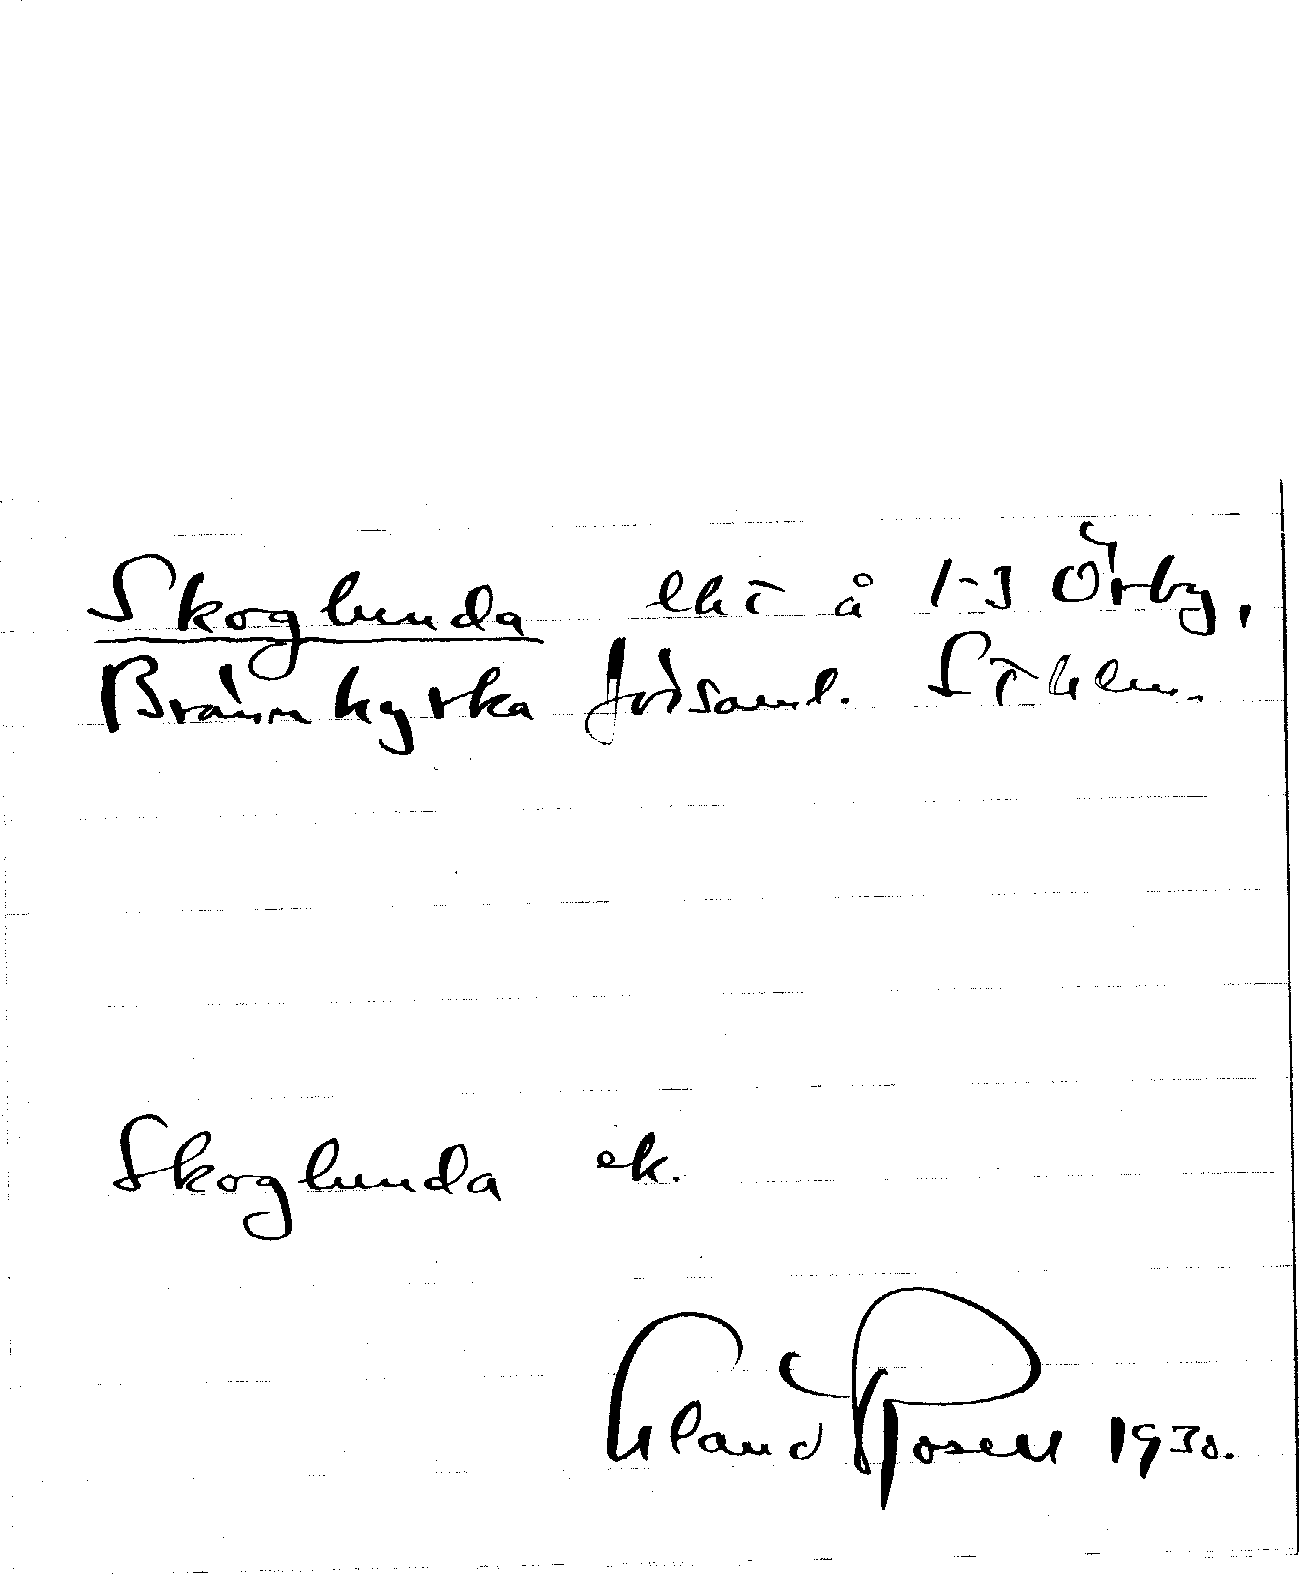 Skoglunda lht å 1-3 Örby,
Brännkyrka förs saml. Sthlm.
Skoglunda ek.
Erland Rosell 1930.